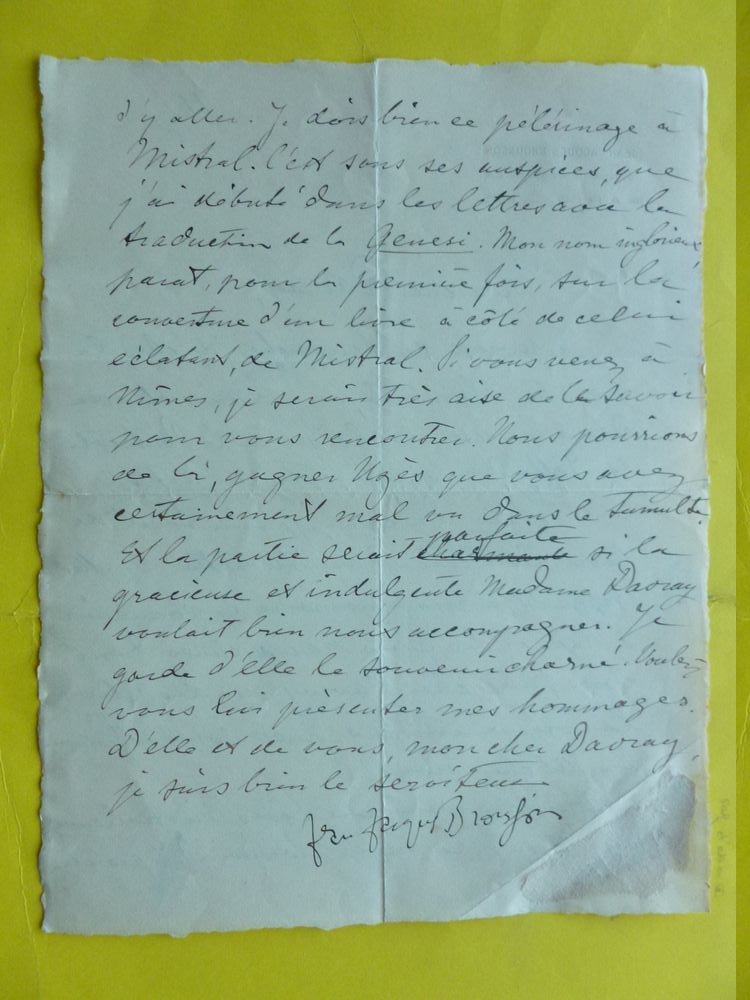 d'y aller. Je dois bien ce pélérinage à
Mistral. C'est sous ses auspices, que
j'ai débuté dans les lettres avec la
traduction de la Genesi. Mon nom inglorieux
parut, pour la première fois, sur la
couverture d'un livre à côté de celui
éclatant, de Mistral. Si vous venez à
Nîmes, je serais très aise de le savoir
pour vous rencontrer. Nous pourrions
de là, gagner Uzès que vous avez
certainement mal vu dans le tumulte.
Et la partie serait charmante parfaite si la
gracieuse et indulgente Madame Davray
voulait bien nous accompagner. Je
garde d'elle le souvenir charmé. Voulez
vous lui présenter mes hommages.
D'elle et de vous, mon cher Davray,
je suis bien le serviteur
Jean Jacques Brousson